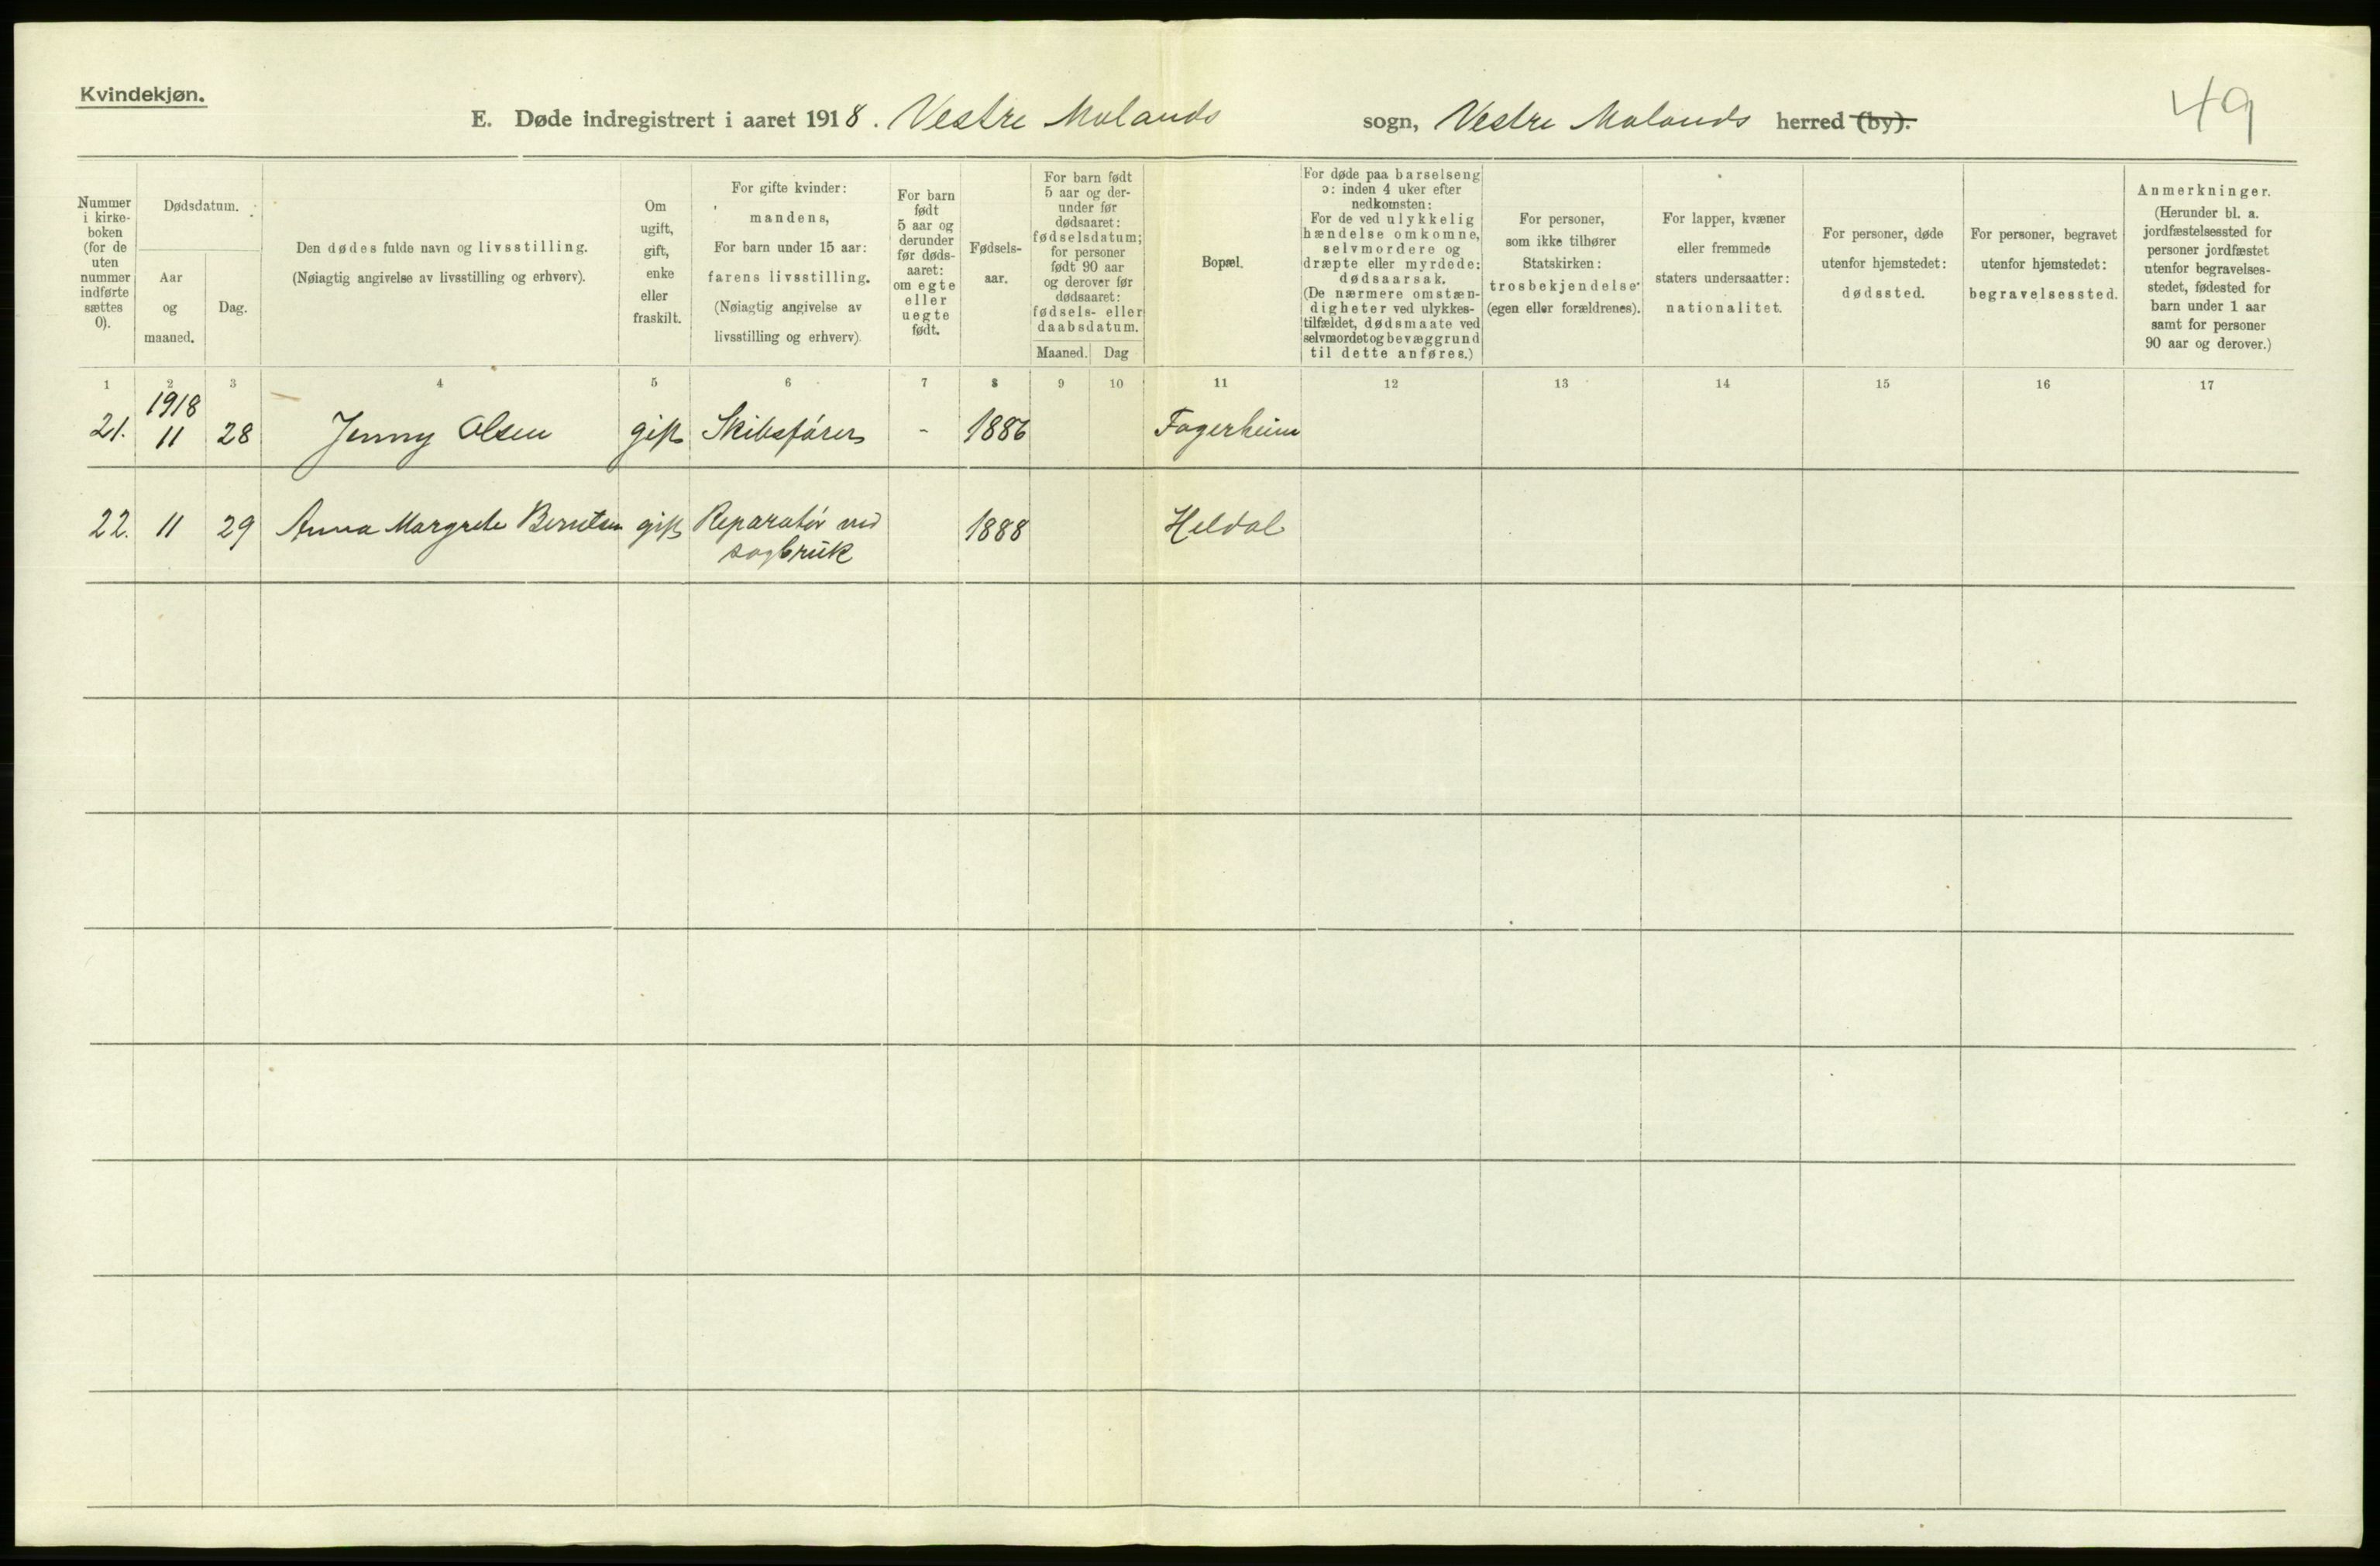 Kvindekjøn.
E. Døde indregistrert i aaret 1918. Vestre Molands sogn, Vestre Molands herred (by).
49
Nummer
i kirke-
boken
(for de
uten
nummer
indførte
sættes
0).
Dødsdatum.
Aar
og
maaned.
Dag.
Den dødes fulde navn og livsstilling.
(Nøiagtig angivelse av livsstilling og erhverv).
Om
ugift,
gift,
enke
eller
fraskilt.
For gifte kvinder:
mandens,
For barn under 15 aar:
farens livsstilling.
(Nøiagtig angivelse av
livsstilling og erhverv)
For barn
født
5 aar og
derunder
før døds-
aaret:
om egte
eller
uegte
født.
Fødsels-
aar.
For barn født
5 aar og der-
under før
dødsaaret:
fødselsdatum;
for personer
født 90 aar
og derover før
dødsaaret:
fødsels- eller
daabsdatum.
Maaned. Dag
Bopæl.
For døde paa barselseng
ɔ: inden 4 uker efter
nedkomsten:
For de ved ulykkelig
hændelse omkomne,
selvmordere og
dræpte eller myrdede:
dødsaarsak.
(De nærmere omstæn-
digheter ved ulykkes-
tilfældet, dødsmaate ved
selvmordet og bevæggrund
til dette anføres.)
For personer,
som ikke tilhører
Statskirken:
trosbekjendelse
(egen eller forældrenes).
For lapper, kvæner
eller fremmede
staters undersaatter:
nationalitet.
For personer, døde
utenfor hjemstedet:
dødssted.
For personer, begravet
utenfor hjemstedet:
begravelsessted.
Anmerkninger.
(Herunder bl. a.
jordfæstelsessted for
personer jordfæstet
utenfor begravelses-
stedet, fødested for
barn under 1 aar
samt for personer
90 aar og derover.)
1 2 3 4 5 6 7 8 9 10 11 12 13 14 15 16 17
1918
21. 11 28 Jenny Olsen gift Skibsfører - 1886 Fagerheim
22. 11 29 Anna Margrete Berntsen gift Reparatør ved 1888 Heldal
sagbruk